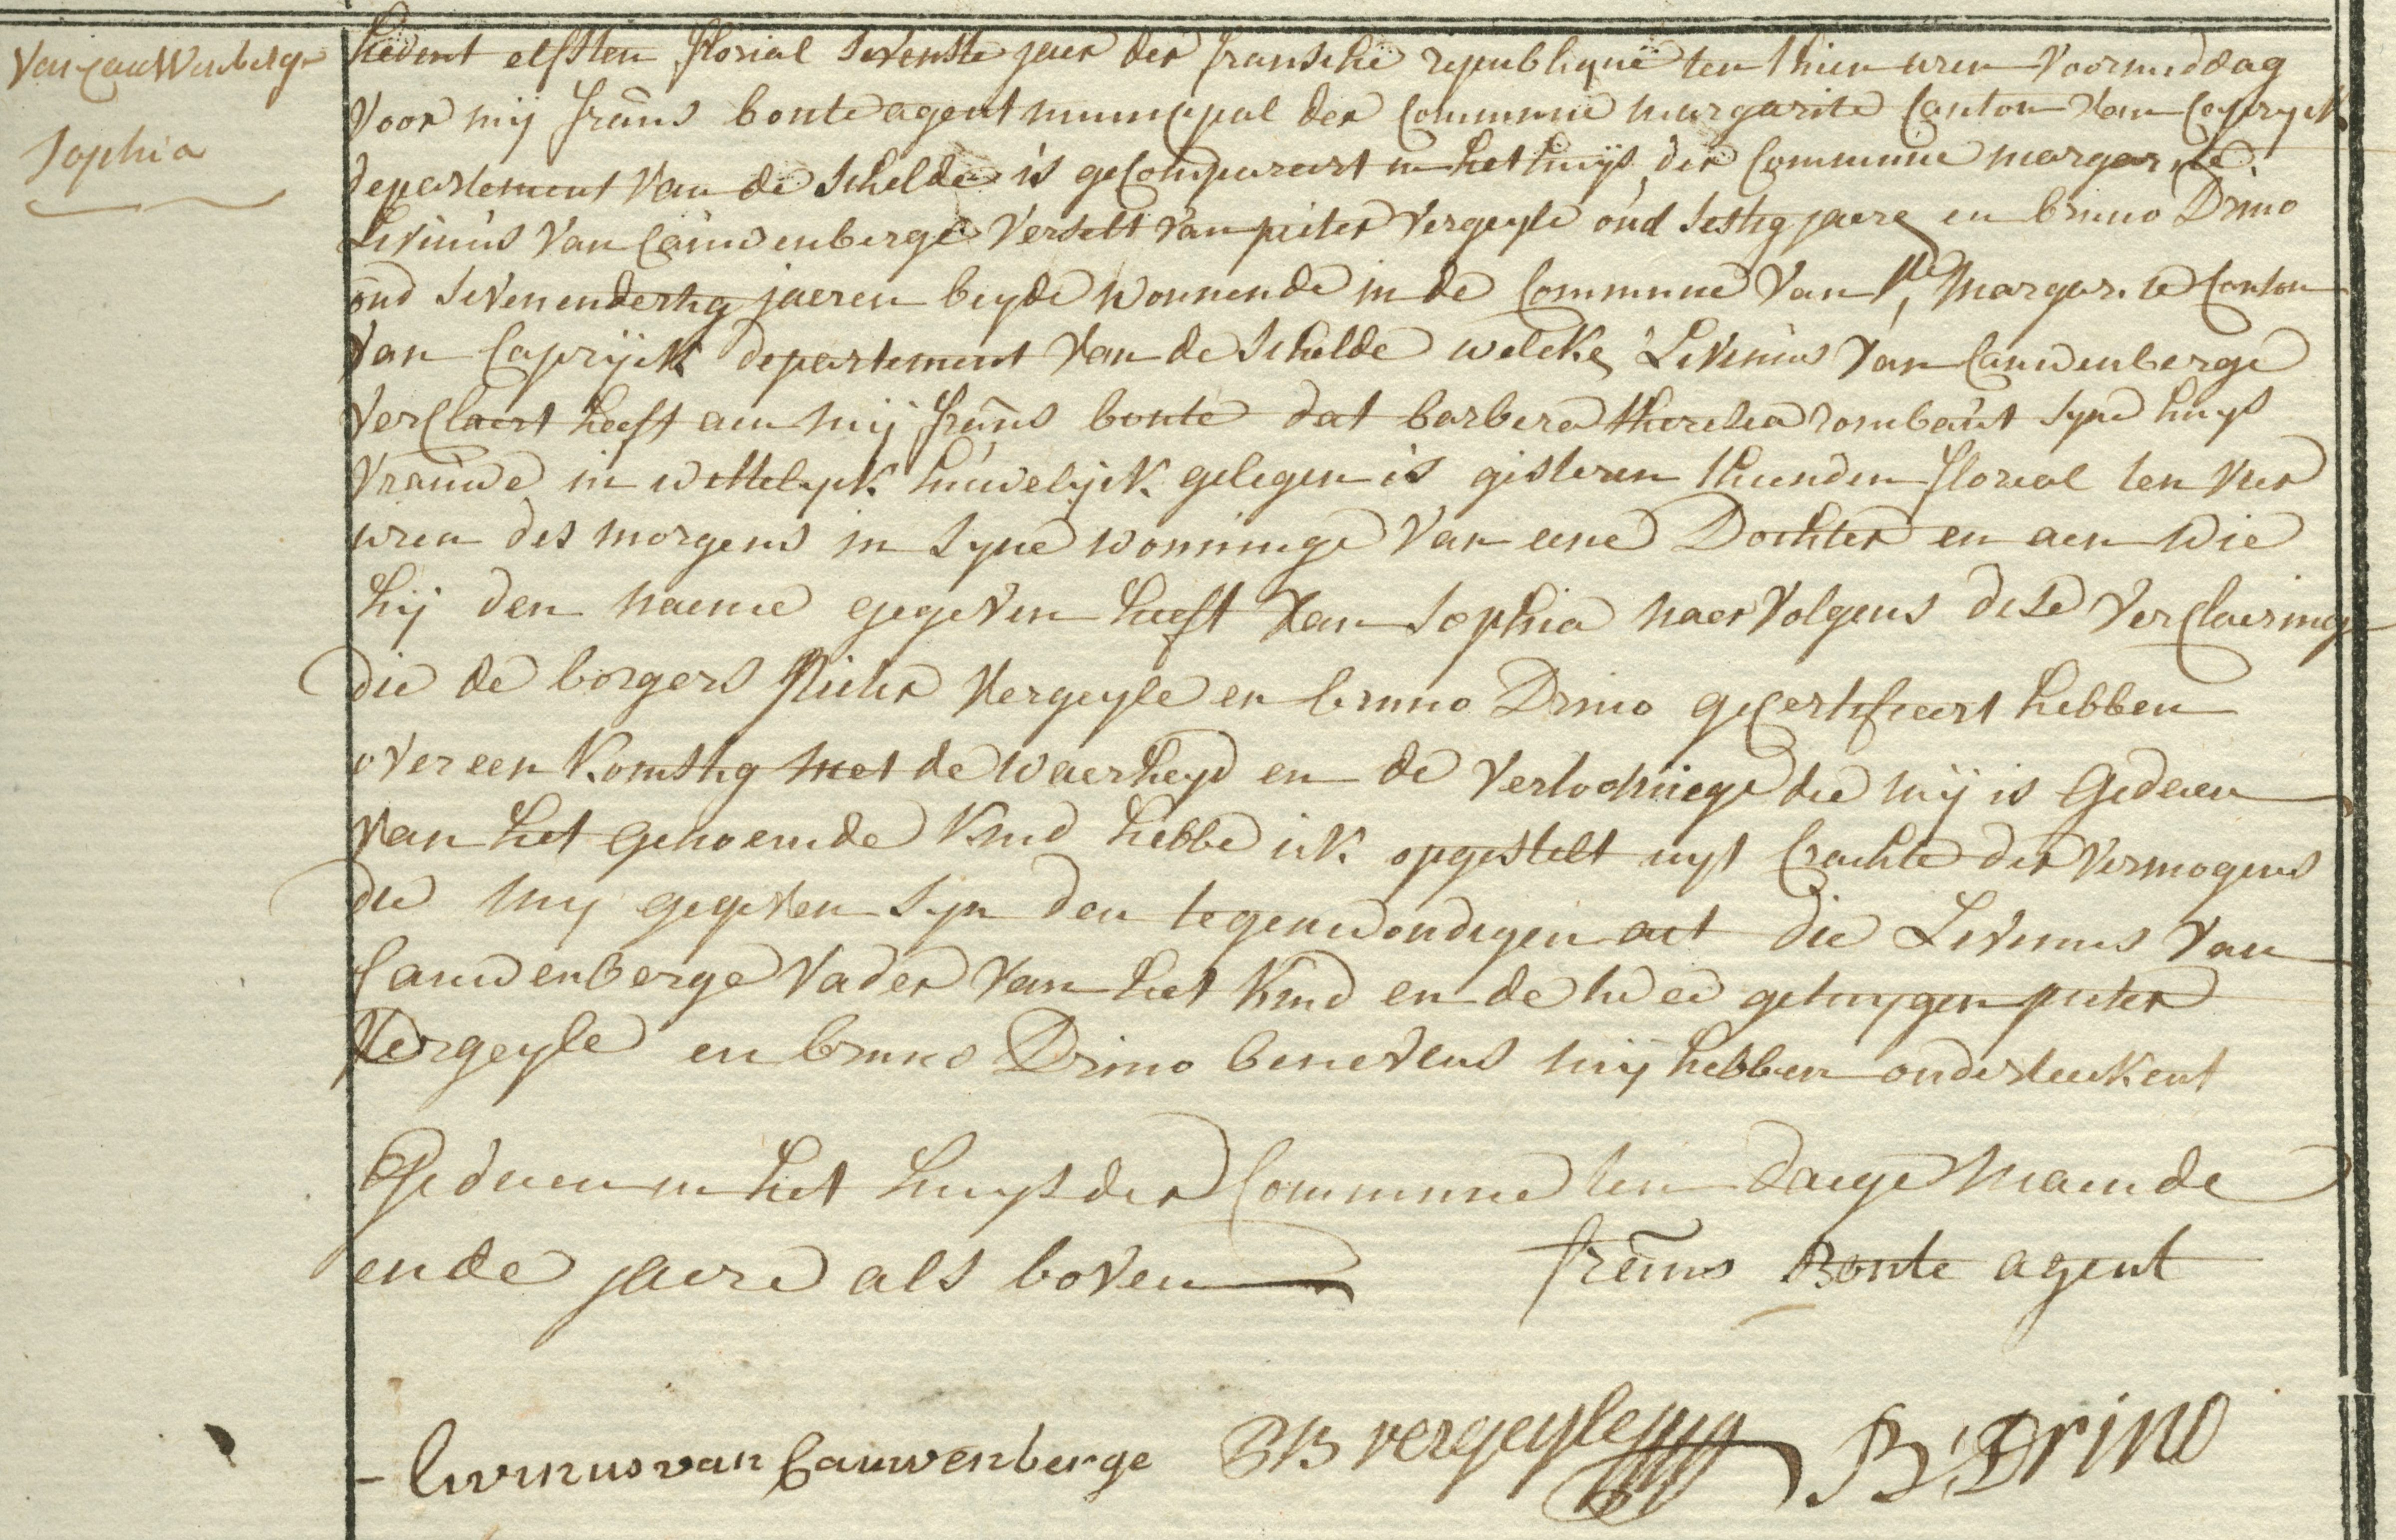 Van Cauwenberge
Sophia
hedent elfsten florial sevenste jaer der fransche republique ten thien uren voormiddag
voor mij frans bonte agent municipal der Commune margarite Canton van Capryck
departement van de schelde is gecompareert in het huijs der Commune margarite
Livinus van Cauwenberge verselt van pieter vergeyle oud sestig jaere en bruno Drino
oud sevenendertig jaeren beyde wonnende in de Commune van Ste Margarite Canton
van Caprijck departement van de schelde welcke Livinus van Cauwenberge
verclaert heeft aen mij frans bonte dat barbera theresia rombaut syne huys
vrauwe in wettelyck huwelijck gelegen is gisteren thienden florial ten vier
uren des morgens in syne wonninge van eene Dochter en aen wie
hij den naeme gegeven heeft van Sophia naer volgens dese verclaeringe
die de borgers Pieter vergeyle en bruno Drino gecertifieert hebben
over een komstig met de waerheyd en de vertoohninge die mij is Gedaen
van het genoemde kind hebbe ick opgestelt uyt crachte der vermogens
die my gegeven syn den tegenwoordigen act die Livinus van
Cauwenberge vader van het kind en de twee getuygen pieter
Vergeyle en bruno Drino benevens mij hebben onderteekent
Gedaen in het huys der Commune ten daege maende
ende jaere als boven frans Bonte agent
livinus van Cauwenberge vergeyle B: Drino